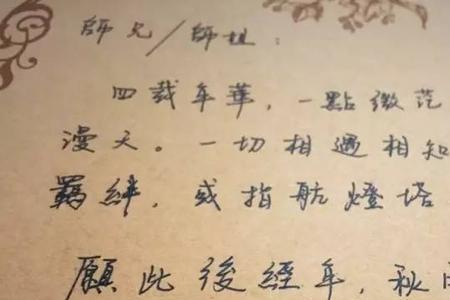 師兄／師姐：
四載年華，一點微茫
漫天。一切相遇相知
羈絆，或指航燈塔
願此後經年，秋